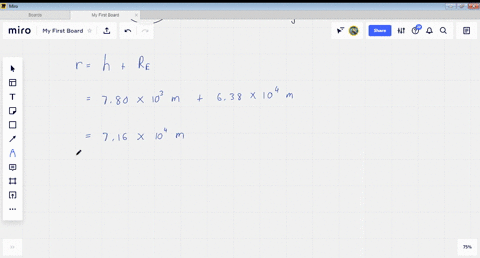 Miro
Boards
My First Board
miro
My First Board
Share
r = h + RE
= 7.80 × 10³ m + 6.38 × 10⁴ m
= 7.16 × 10⁴ m
75%